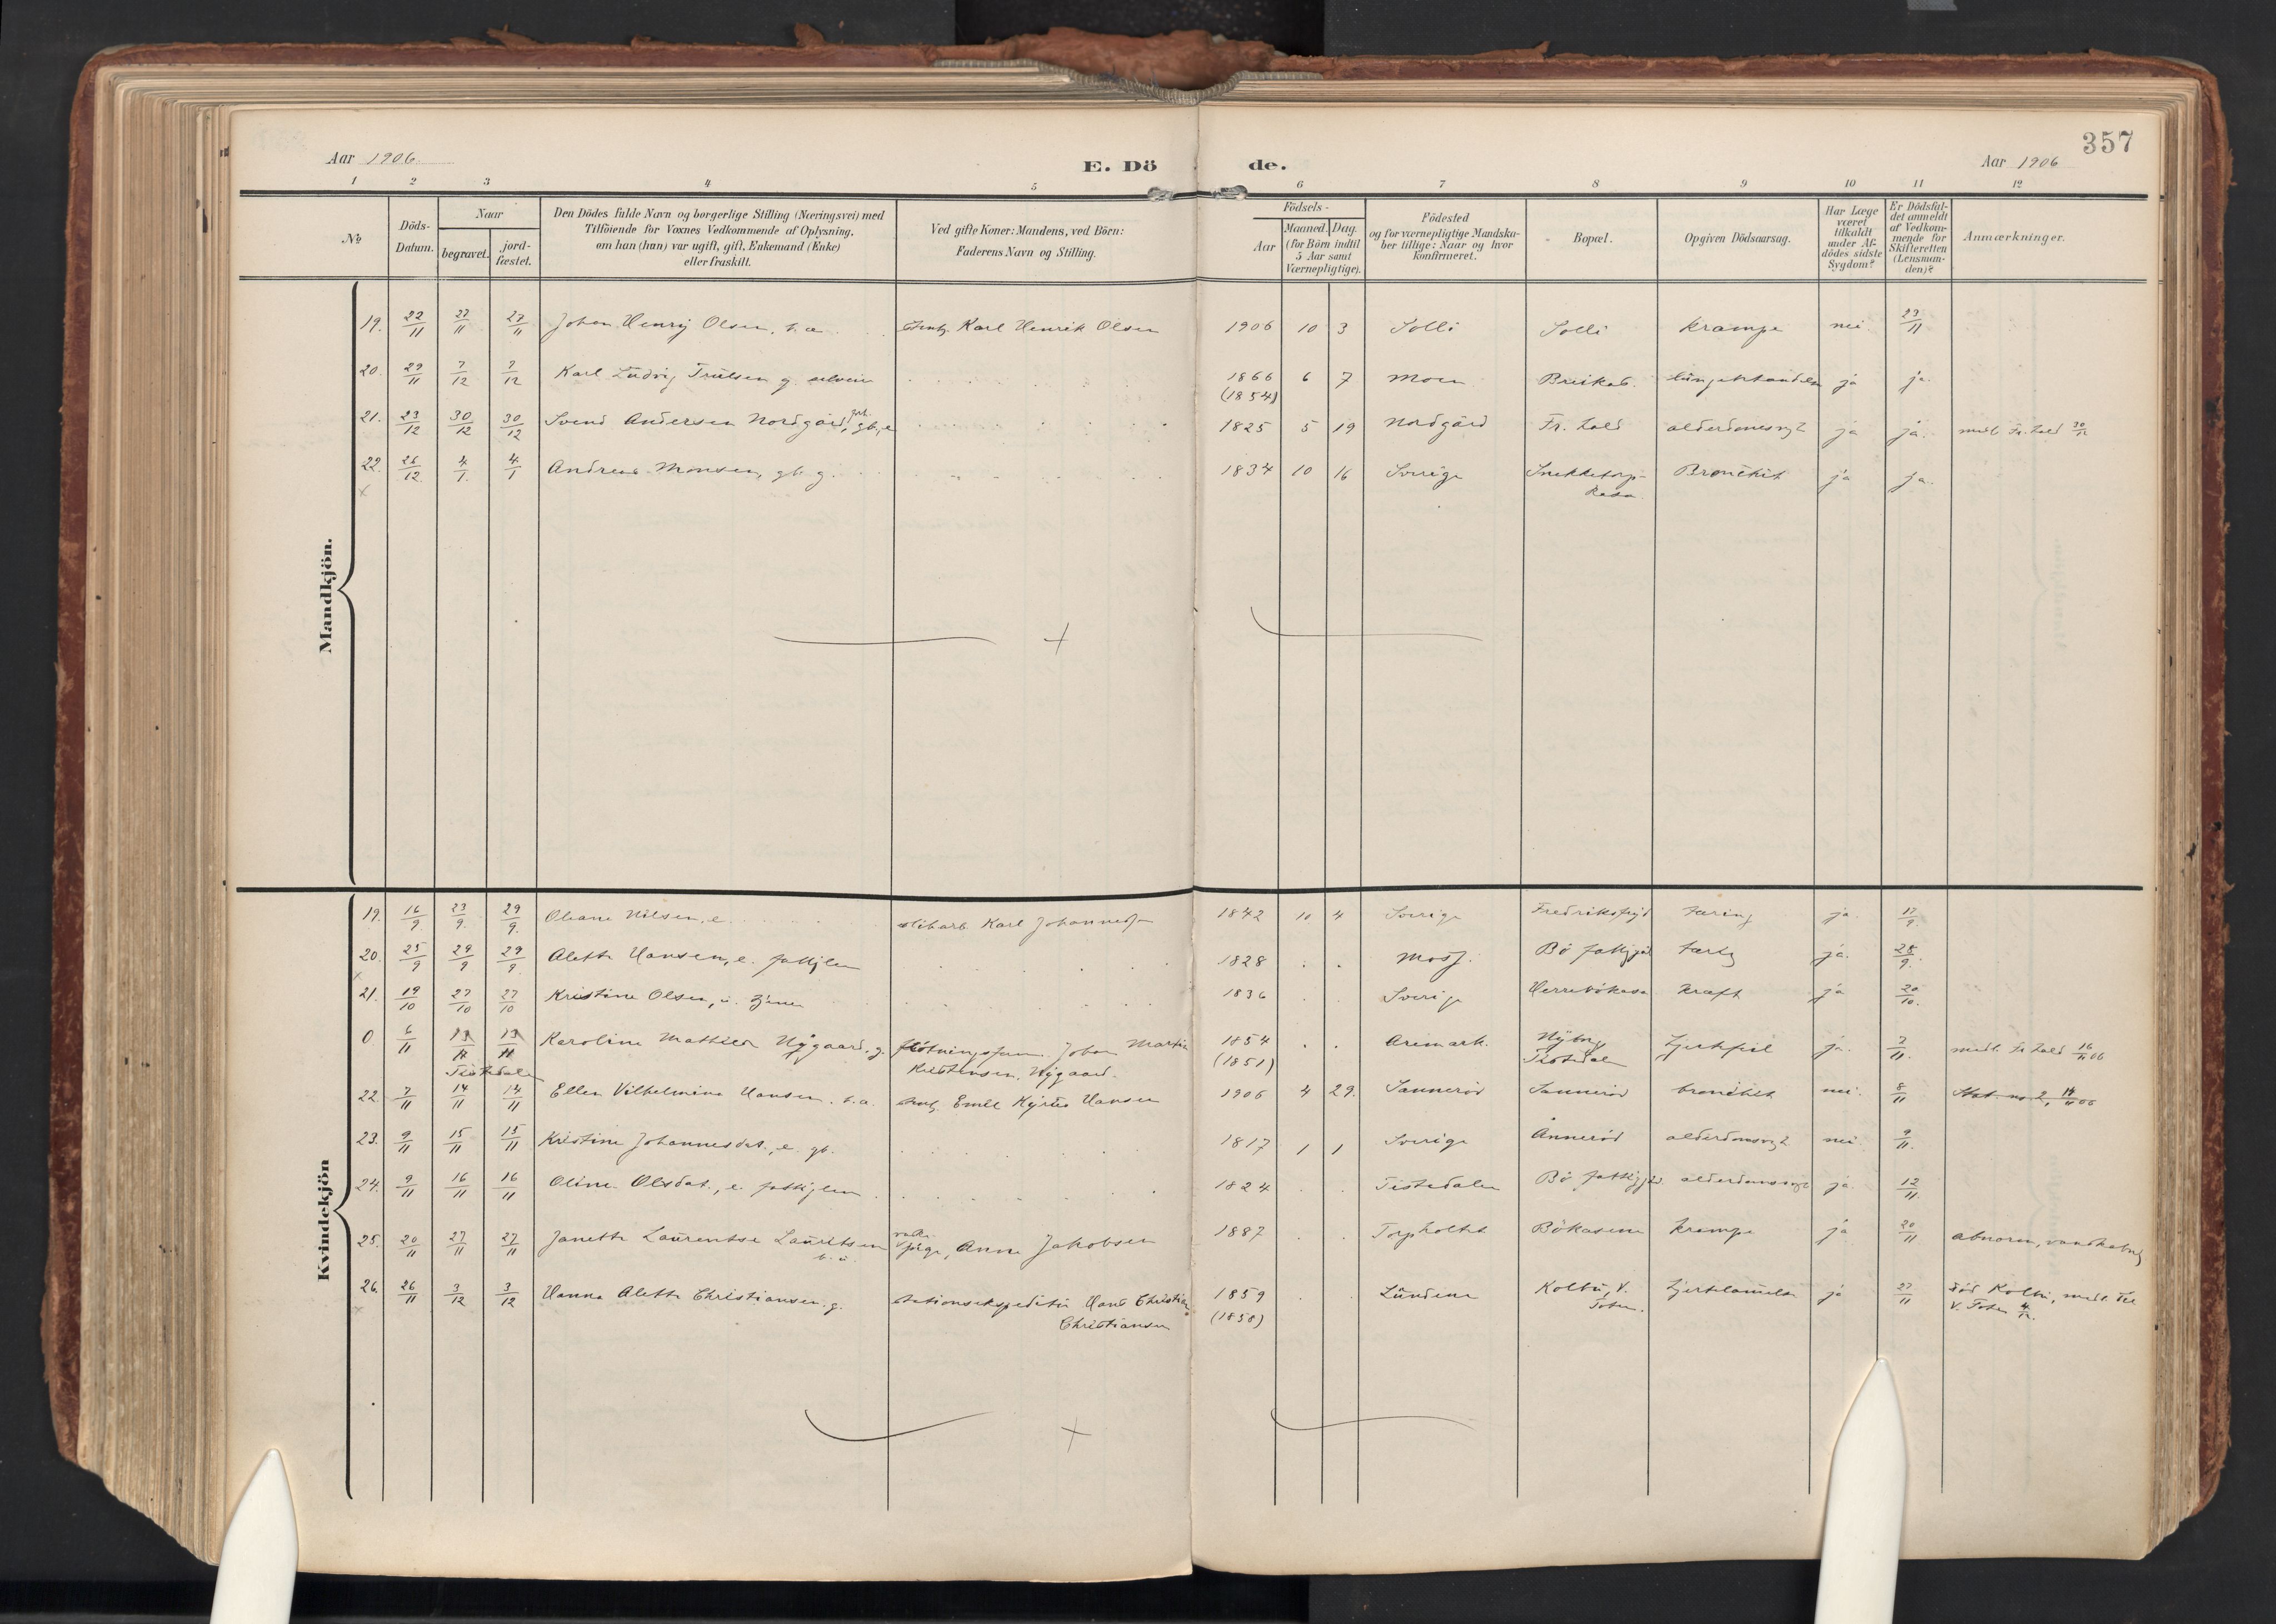 357
Aar 1906.
E. Dö de.
Aar 1906
1 2 3 4 5 6 7 8 9 10 11 12
No
Döds-Datum.
Naar
begravet.
jord-fæstet.
Den Dödes fulde Navn og borgerlige Stilling (Næringsvei) med
Tilföiende for Voxnes Vedkommende af Oplysning,
om han (hun) var ugift, gift, Enkemand (Enke)
eller fraskilt.
Ved gifte Koner: Mandens, ved Börn:
Faderens Navn og Stilling.
Födsels-
Aar
Maaned. Dag.
(for Börn indtil
5 Aar samt
Værnepligtige).
Födested
og for værnepligtige Mandska-
ber tillige: Naar og hvor
konfirmeret.
Bopæl.
Opgiven Dödsaarsag.
Har Læge
været
tilkaldt
under Af-
dödes sidste
Sygdom?
Er Dödsfal-
det anmeldt
af Vedkom-
mende for
Skifteretten
(Lensman-
den)?
Anmærkninger.
Mandkjön.
19. 22/11 27/11 27/11 Johan Henry Olsen, b. a. Karl Henrik Olsen 1906 10 3 Solli Solli krampe nei. 23/11
20. 29/11 7/12 7/12 Karl Ludvig Trulsen g. 1866 6 7 Moen ja ja.
(1854)
21. 23/12 30/12 30/12 Svend Andersen Nordgård, gb, e 1825 5 19 Nordgård Fr. hald ja ja. medt Fr. hald 30/12
22. 26/12 4/1 4/1 Andreas Monsen, gb. g. 1834 10 16 Sverige Bronchit ja ja.
Kvindekjön
19. 16/9 23/9 29/9. Oleane Nilsen, e. Karl Johannes 1842 10 4 Sverige Tæring ja. 17/9.
20. 25/9 29/9 29/9. Alette Hansen, e. 1828 Moss. Bö ja. 25/9.
21. 19/10 27/10 27/10 Kristine Olsen, u. 1836 Sverige kræft ja 20/10.
0 6/11 13/11 13/11 Karoline Mathilda Nygaard, g. Johan Martin 1854 Aremark. Nyborg ja. 7/11. medt. Fr hald 16/11 06
Tistedalen Kristensen Nygaard. (1851) Tistedalen
22. 7/11 14/11 14/11 Ellen Vilhelmine Hansen. b. a. Emil Kyrus Hansen 1906 4 29. Sannerød Sannerød bronchit nei. 8/11
23. 9/11 15/11 15/11 Kristine Johannesdat., e. gb. 1817 1 1 Sverige Annerød nei. 9/11.
24. 9/11 16/11 16/11 Oline Olsdat., e. 1824 Tistedalen Bö ja. 12/11.
25. 20/11 27/11 27/11 Janette Laurentse Lauritsen pige, Anne Jakobsen 1887 Torpholtet Bökasene krampe ja 20/11 abnorm,
b. u.
26. 26/11 3/12 3/12 Hanna Alette Christiansen. g. stationsekspeditör Hans Christian 1859 Lundene Kolbu, V. hjertelamelse ja 27/11 död Kolbu, medt. til
Christiansen (1858) Toten. V. Toten 4/12.